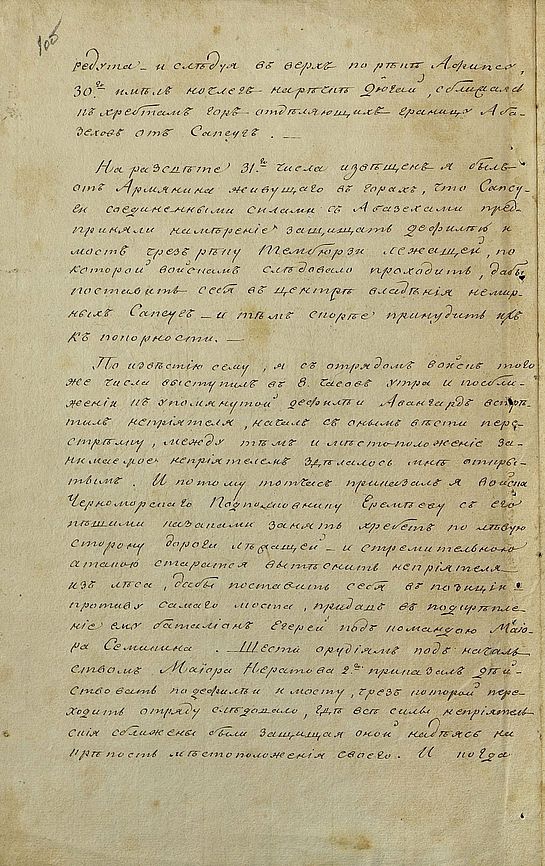 105
редута – и слѣдуя въ верхъ по рѣкѣ Афипсу,
30.го имѣлъ ночлегъ на рѣкѣ Дюгай, сближаясь
къ хребтамъ горъ отдѣляющихъ границу Аба-
зеховъ отъ Сапсугъ. —
На разсвѣте 31.го числа извѣщенъ я былъ
отъ Армянина живущаго въ горахъ, что Сапсу-
ги соединенными силами съ Абазехами пред-
приняли намѣреніе защищать дефилѣю и
мостъ чрезъ рѣку лежащей, по
которой войскамъ слѣдовало проходить, дабы
поставить себя въ центръ владѣнія немир-
ныхъ Сапсугъ – и тѣмъ спорѣе принудить ихъ
къ покорности. —
По извѣстію сему, я съ отрядомъ войскъ того
же числа выступилъ въ 8. часовъ утра и посбли-
женіи къ упомянутой дефилѣи Авангардъ встрѣ-
тилъ непріятеля, началъ съ онымъ вѣсти пере-
стрѣлку, между тѣмъ и мѣстоположеніе за-
нимаемое непріятелемъ здѣлалось мнѣ откры-
тымъ. И потому тотчасъ приказалъ я Войска
Черноморскаго Подполковнику Еремѣеву съ его
пѣшими казаками занять хребетъ по лѣвую
сторону дороги лѣжащей – и стремительною
атакою старатся вытѣснить непріятеля
изъ лѣса, дабы поставить себя въ позицію
противу самаго моста, придавъ въ подкрѣпле-
ніе ему баталіонъ Егерей подъ командою Маіо-
ра Семилина. Шести орудіямъ подъ началь-
ствомъ Маіора Нератова 2.го приказалъ дѣй-
ствовать по дефилѣи и мосту, чрезъ которой пере-
ходить отряду слѣдовало, гдѣ всѣ силы непріятель-
скія сближены были защищая оной надѣясь на
крѣпость мѣстоположенія своего. И когда